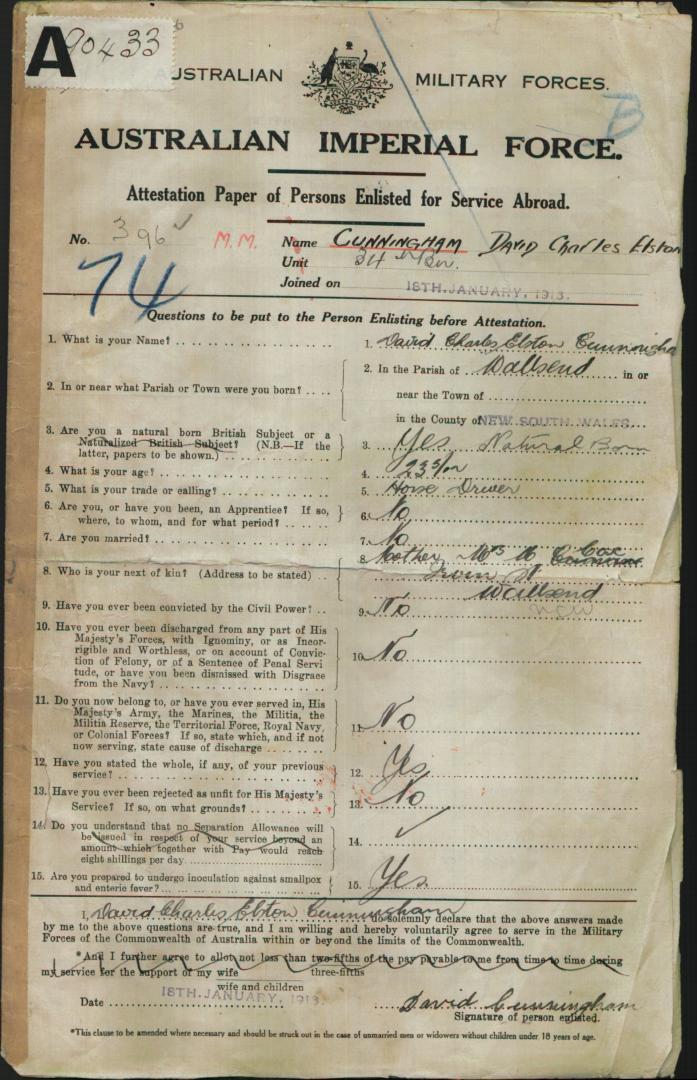 A 90433
AUSTRALIAN MILITARY FORCES.
B
AUSTRALIAN IMPERIAL FORCE.
Attestation Paper of Persons Enlisted for Service Abroad.
No. 396 M.M. Name CUNNINGHAM David Charles Elston
74
Unit 34th Bn.
Joined on 18TH. JANUARY, 1916.
Questions to be put to the Person Enlisting before Attestation.
1. What is your Name? 1. David Charles Elston Cunningham
2. In or near what Parish or Town were you born? 2. In the Parish of Wallsend in or
near the Town of
in the County of NEW SOUTH WALES
3. Are you a natural born British Subject or a
Naturalized British Subject? (N.B.—If the
latter, papers to be shown.) 3. Yes Natural Born
4. What is your age? 4. 23 5/12
5. What is your trade or calling? 5. Horse Driver
6. Are you, or have you been, an Apprentice? If so,
where, to whom, and for what period? 6. No
7. Are you married? 7. No
8. Who is your next of kin? (Address to be stated) 8. Mother Mrs M Cox
Wallsend
NSW
9. Have you ever been convicted by the Civil Power? 9. No
10. Have you ever been discharged from any part of His
Majesty's Forces, with Ignominy, or as Incor-
rigible and Worthless, or on account of Convic-
tion of Felony, or of a Sentence of Penal Servi
tude, or have you been dismissed with Disgrace
from the Navy? 10. No
11. Do you now belong to, or have you ever served in, His
Majesty's Army, the Marines, the Militia, the
Militia Reserve, the Territorial Force, Royal Navy,
or Colonial Forces? If so, state which, and if not
now serving, state cause of discharge 11. No
12. Have you stated the whole, if any, of your previous
service? 12. Yes
13. Have you ever been rejected as unfit for His Majesty's
Service? If so, on what grounds? 13. No
14. Do you understand that no Separation Allowance will
be issued in respect of your service beyond an
amount which together with Pay would reach
eight shillings per day. 14. ✓
15. Are you prepared to undergo inoculation against smallpox
and enteric fever? 15. Yes
I, David Charles Elston Cunningham do solemnly declare that the above answers made
by me to the above questions are true, and I am willing and hereby voluntarily agree to serve in the Military
Forces of the Commonwealth of Australia within or beyond the limits of the Commonwealth.
*And I further agree to allot not less than two-fifths of the pay payable to me from time to time during
my service for the support of my wife three-fifths
wife and children
Date 18TH. JANUARY, 1916. David Cunningham
Signature of person enlisted.
*This clause to be amended where necessary and should be struck out in the case of unmarried men or widowers without children under 18 years of age.